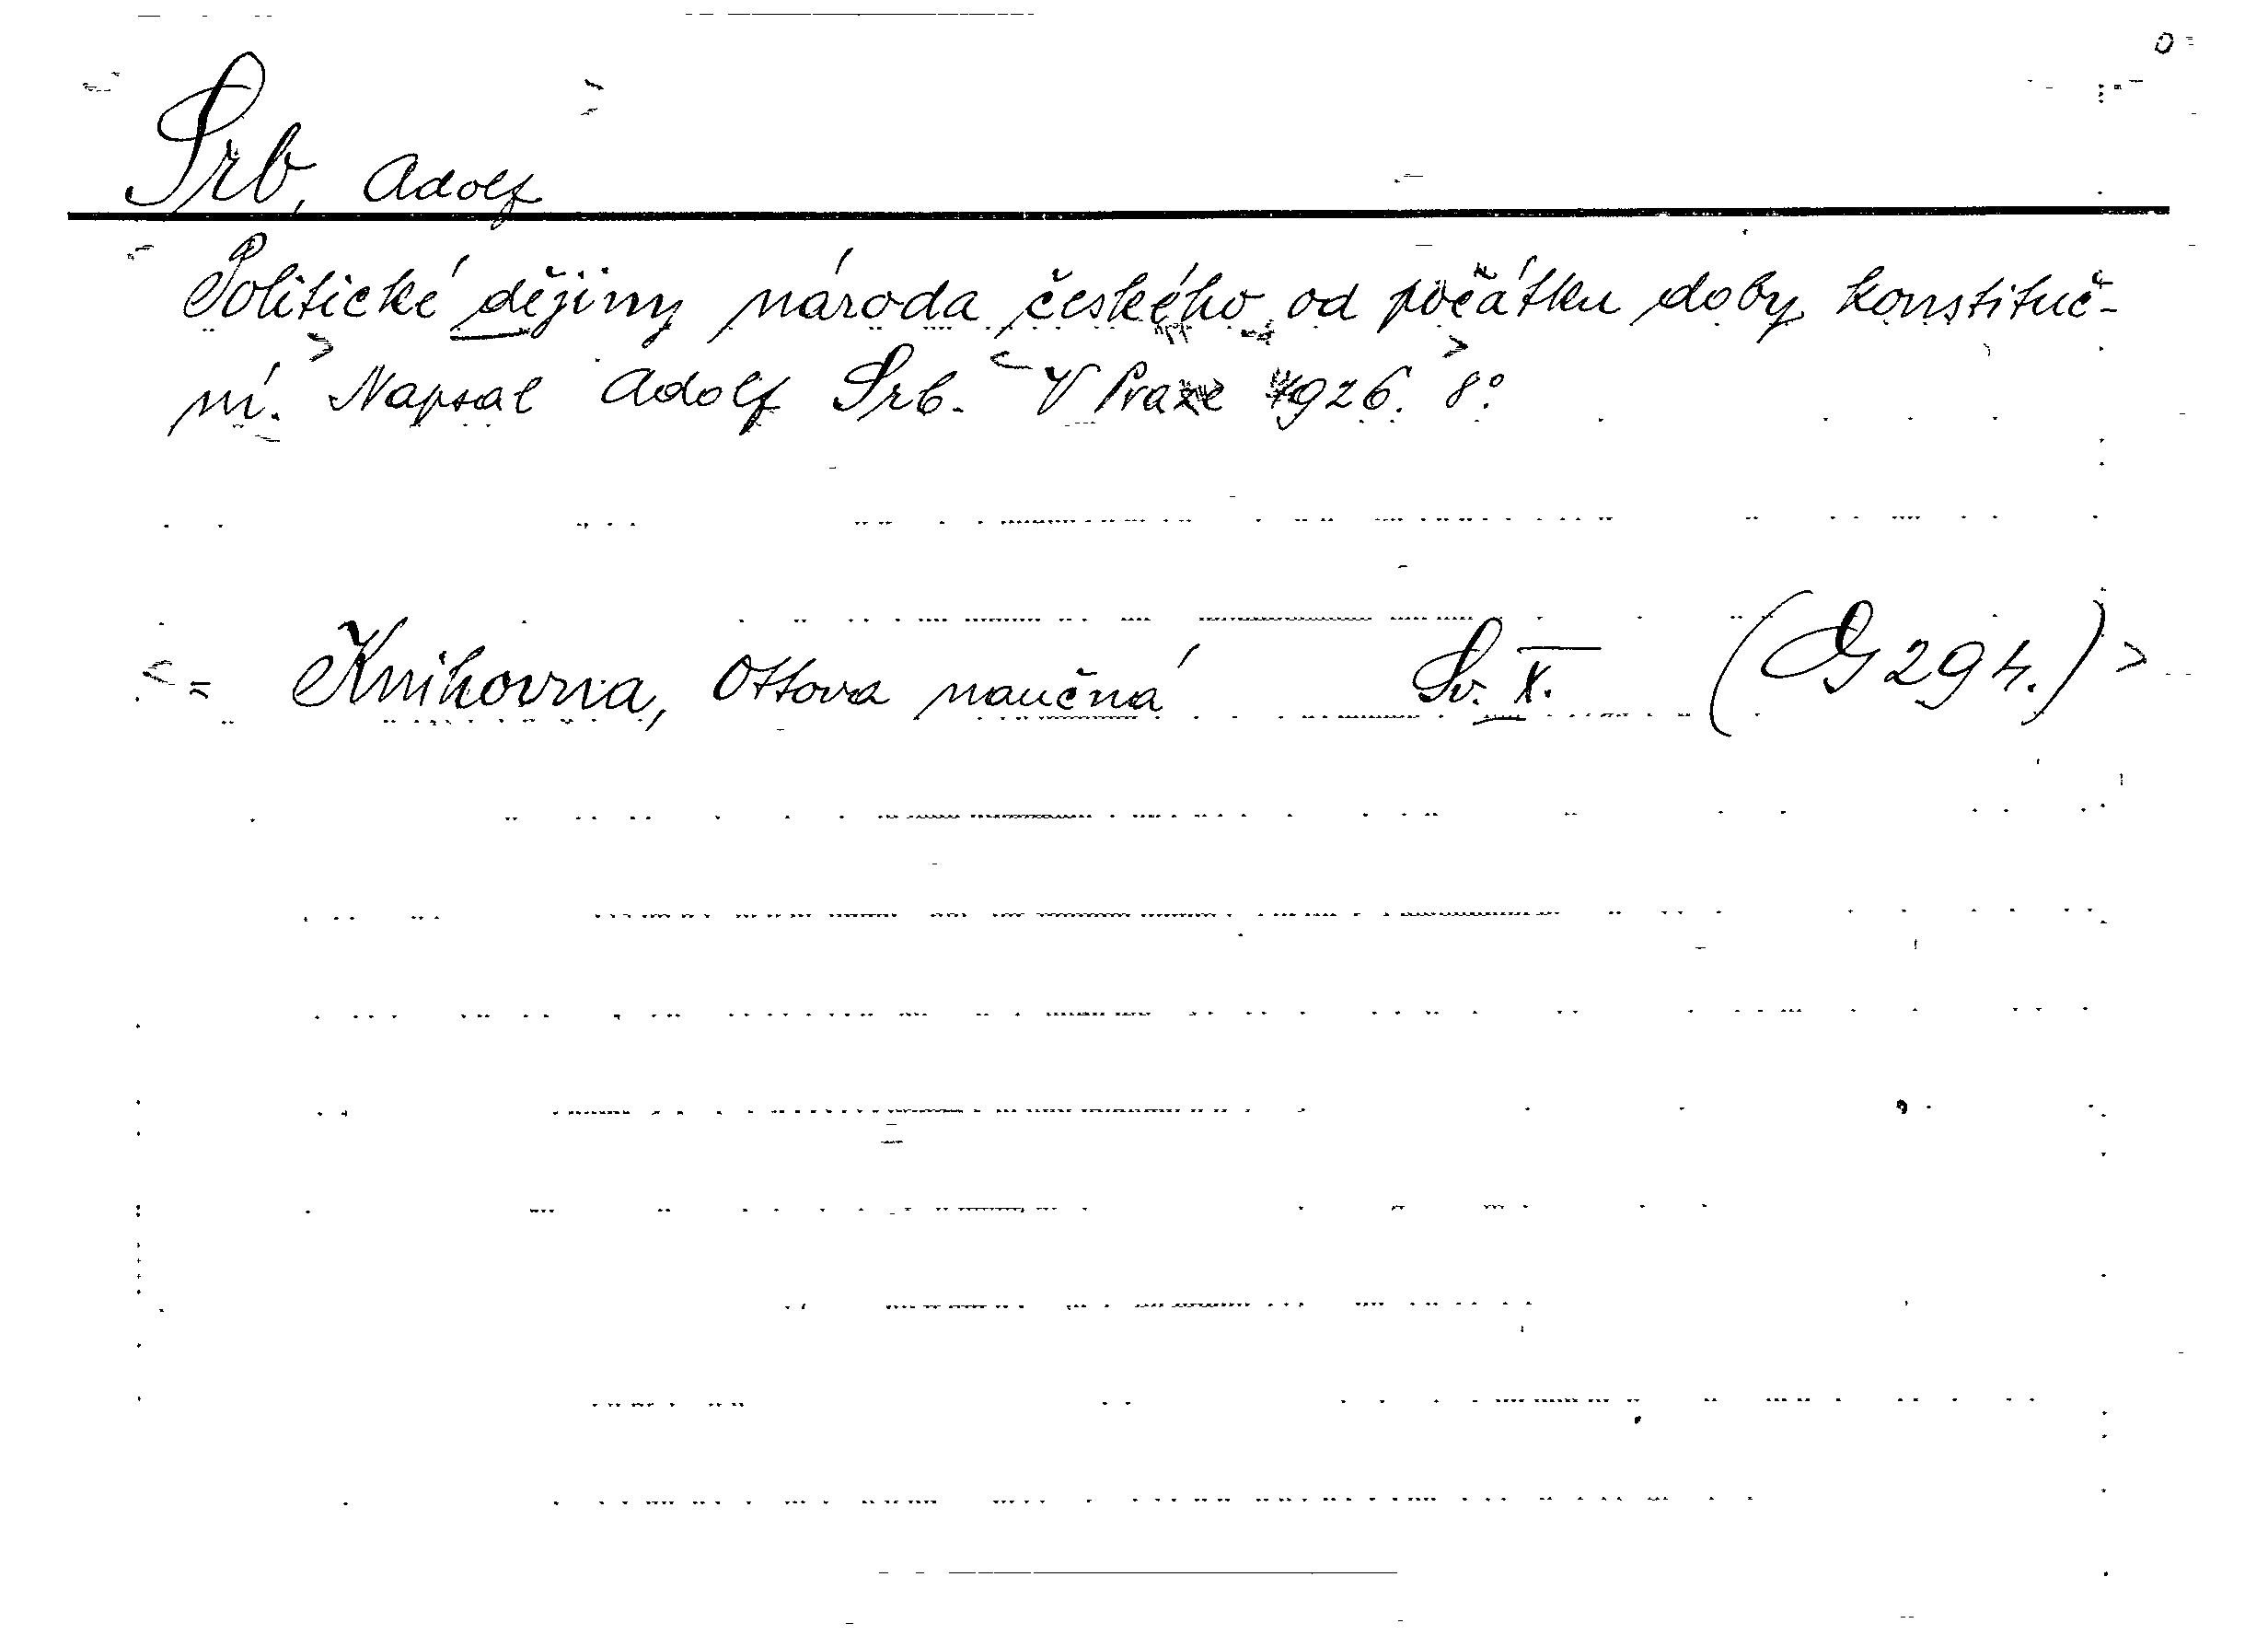 Srb, Adolf
Politické dějiny národa českého od počátku doby konstituč-
ní. Napsal Adolf Srb. V Praze 1926. 8°.
= Knihovna, Ottova naučná Sv. X. (G 294.)